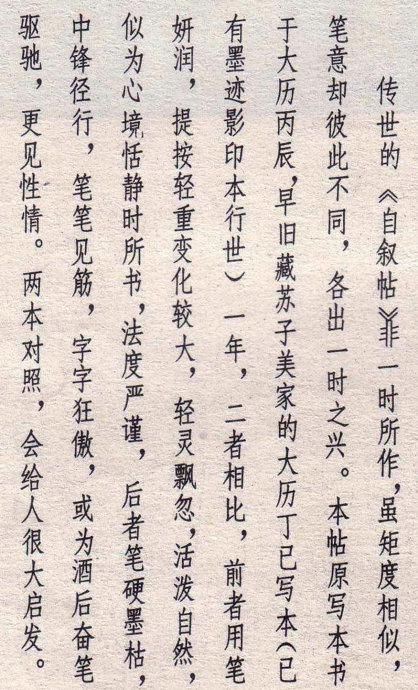 传世的《自叙帖》非一时所作，虽矩度相似，
笔意却彼此不同，各出一时之兴。本帖原写本书
于大历丙辰，早旧藏苏子美家的大历丁巳写本（已
有墨迹影印本行世）一年，二者相比，前者用笔
妍润，提按轻重变化较大，轻灵飘忽，活泼自然，
似为心境恬静时所书，法度严谨，后者笔硬墨枯，
中锋径行，笔笔见筋，字字狂傲，或为酒后奋笔
驱驰，更见性情。两本对照，会给人很大启发。